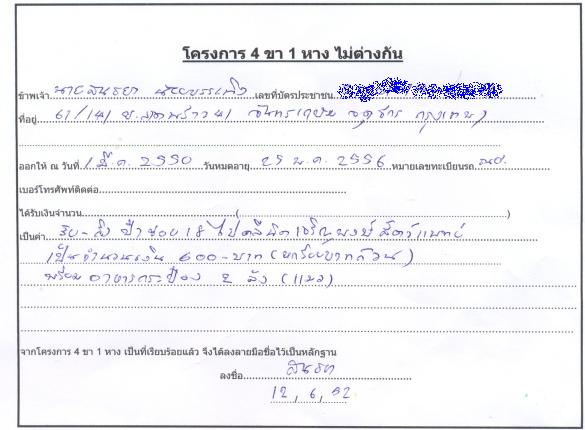 โครงการ 4 ขา 1 หาง ไม่ต่างกัน
ข้าพเจ้า นาย เลขที่บัตรประชาชน
ที่อยู่ 61/141 ซ.ลาดพร้าว 41 จตุจักร กรุงเทพฯ
ออกให้ ณ วันที่ 1 มี.ค. 2550 วันหมดอายุ 25 พ.ค. 2556 หมายเลขทะเบียนรถ
เบอร์โทรศัพท์ติดต่อ
ได้รับเงินจำนวน ( )
เป็นค่า รับ-ส่ง ป้า ซอย 18 ไปคลีนิค เจริญพงษ์สัตวแพทย์
เป็นจำนวนเงิน 600-บาท (หกร้อยบาทถ้วน)
พร้อม อาหารกระป๋อง 2 ลัง (แมว)
จากโครงการ 4 ขา 1 หาง เป็นที่เรียบร้อยแล้ว จึงได้ลงลายมือชื่อไว้เป็นหลักฐาน
ลงชื่อ
12, 6, 52